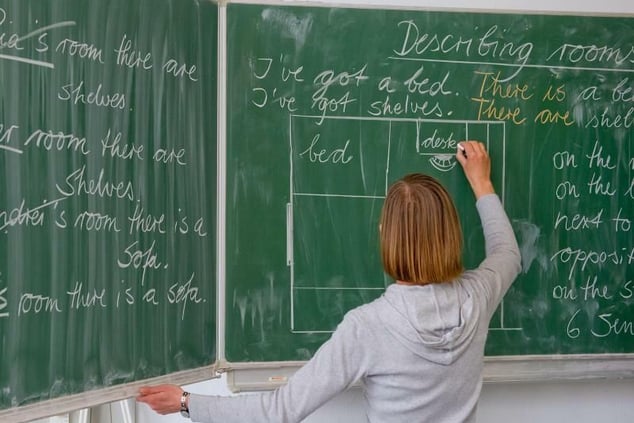 ia's room there are
shelves.
room there are
Shelves.
room there is a
Sofa.
room there is a sofa.
Describing rooms
I've got a bed. There is a be
I've got shelves. There are shel
bed
desk
on the
on the
next to
opposit
on the
6 Sen